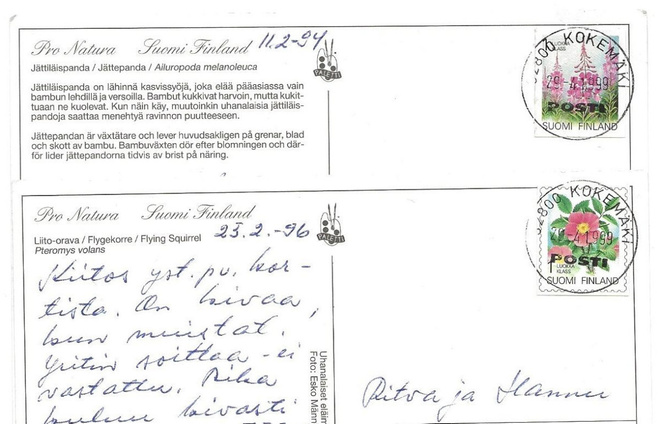 Pro Natura Suomi Finland 11.2-94
Jättiläispanda / Jättepanda / Ailuropoda melanoleuca
Jättiläispanda on lähinnä kasvissyöjä, joka elää pääasiassa vain
bambun lehdillä ja versoilla. Bambut kukkivat harvoin, mutta kukit-
tuaan ne kuolevat. Kun näin käy, muutoinkin uhanalaisia jättiläis-
pandoja saattaa menehtyä ravinnon puutteeseen.
Jättepandan är växtätare och lever huvudsakligen på grenar, blad
och skott av bambu. Bambuväxten dör efter blomningen och där-
för lider jättepandorna tidvis av brist på näring.
PALETTI
LUOKKA
KLASS
32800 KOKEMÄKI
29.-4.1999
POSTI
SUOMI FINLAND
Pro Natura Suomi Finland
Liito-orava / Flygekorre / Flying Squirrel 23.2.-96
Pteromys volans
Kiitos yst. pv. kor-
tista. On kivaa,
kun muistat.
Yritin soittaa - ei
vastattu.
kuluu kivasti
PALETTI
Uhanalaiset eläim
Foto: Esko Männ
32800 KOKEMÄKI
29.-4.1999
POSTI
1 LUOKKA
KLASS
SUOMI FINLAND
Ritva ja Hannu